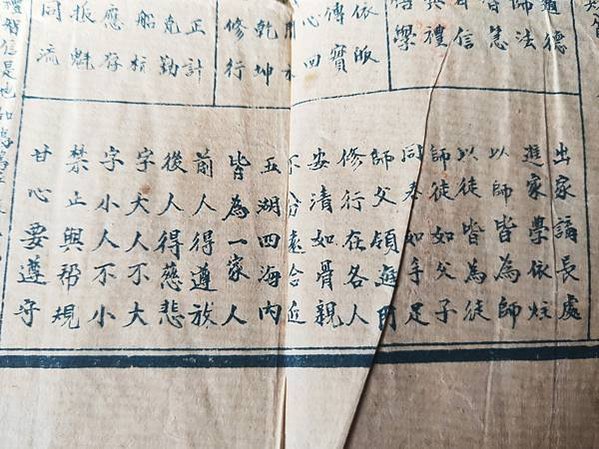 德
師法
信
與禮
學
依皈
傳寶
心回
乾坤
修行
正計
克勤
船
應存
振魁
同流
出家論長處
進家學依炷
以師皆為師
以徒皆為徒
師徒如父子
同參如手足
師父領進門
修行在各人
安清如骨親
不分遠合近
五湖四海內
皆為一家人
前人得遵放
後人得慈悲
字大人不大
字小人不小
禁止與帮規
甘心要遵守
智信是也如